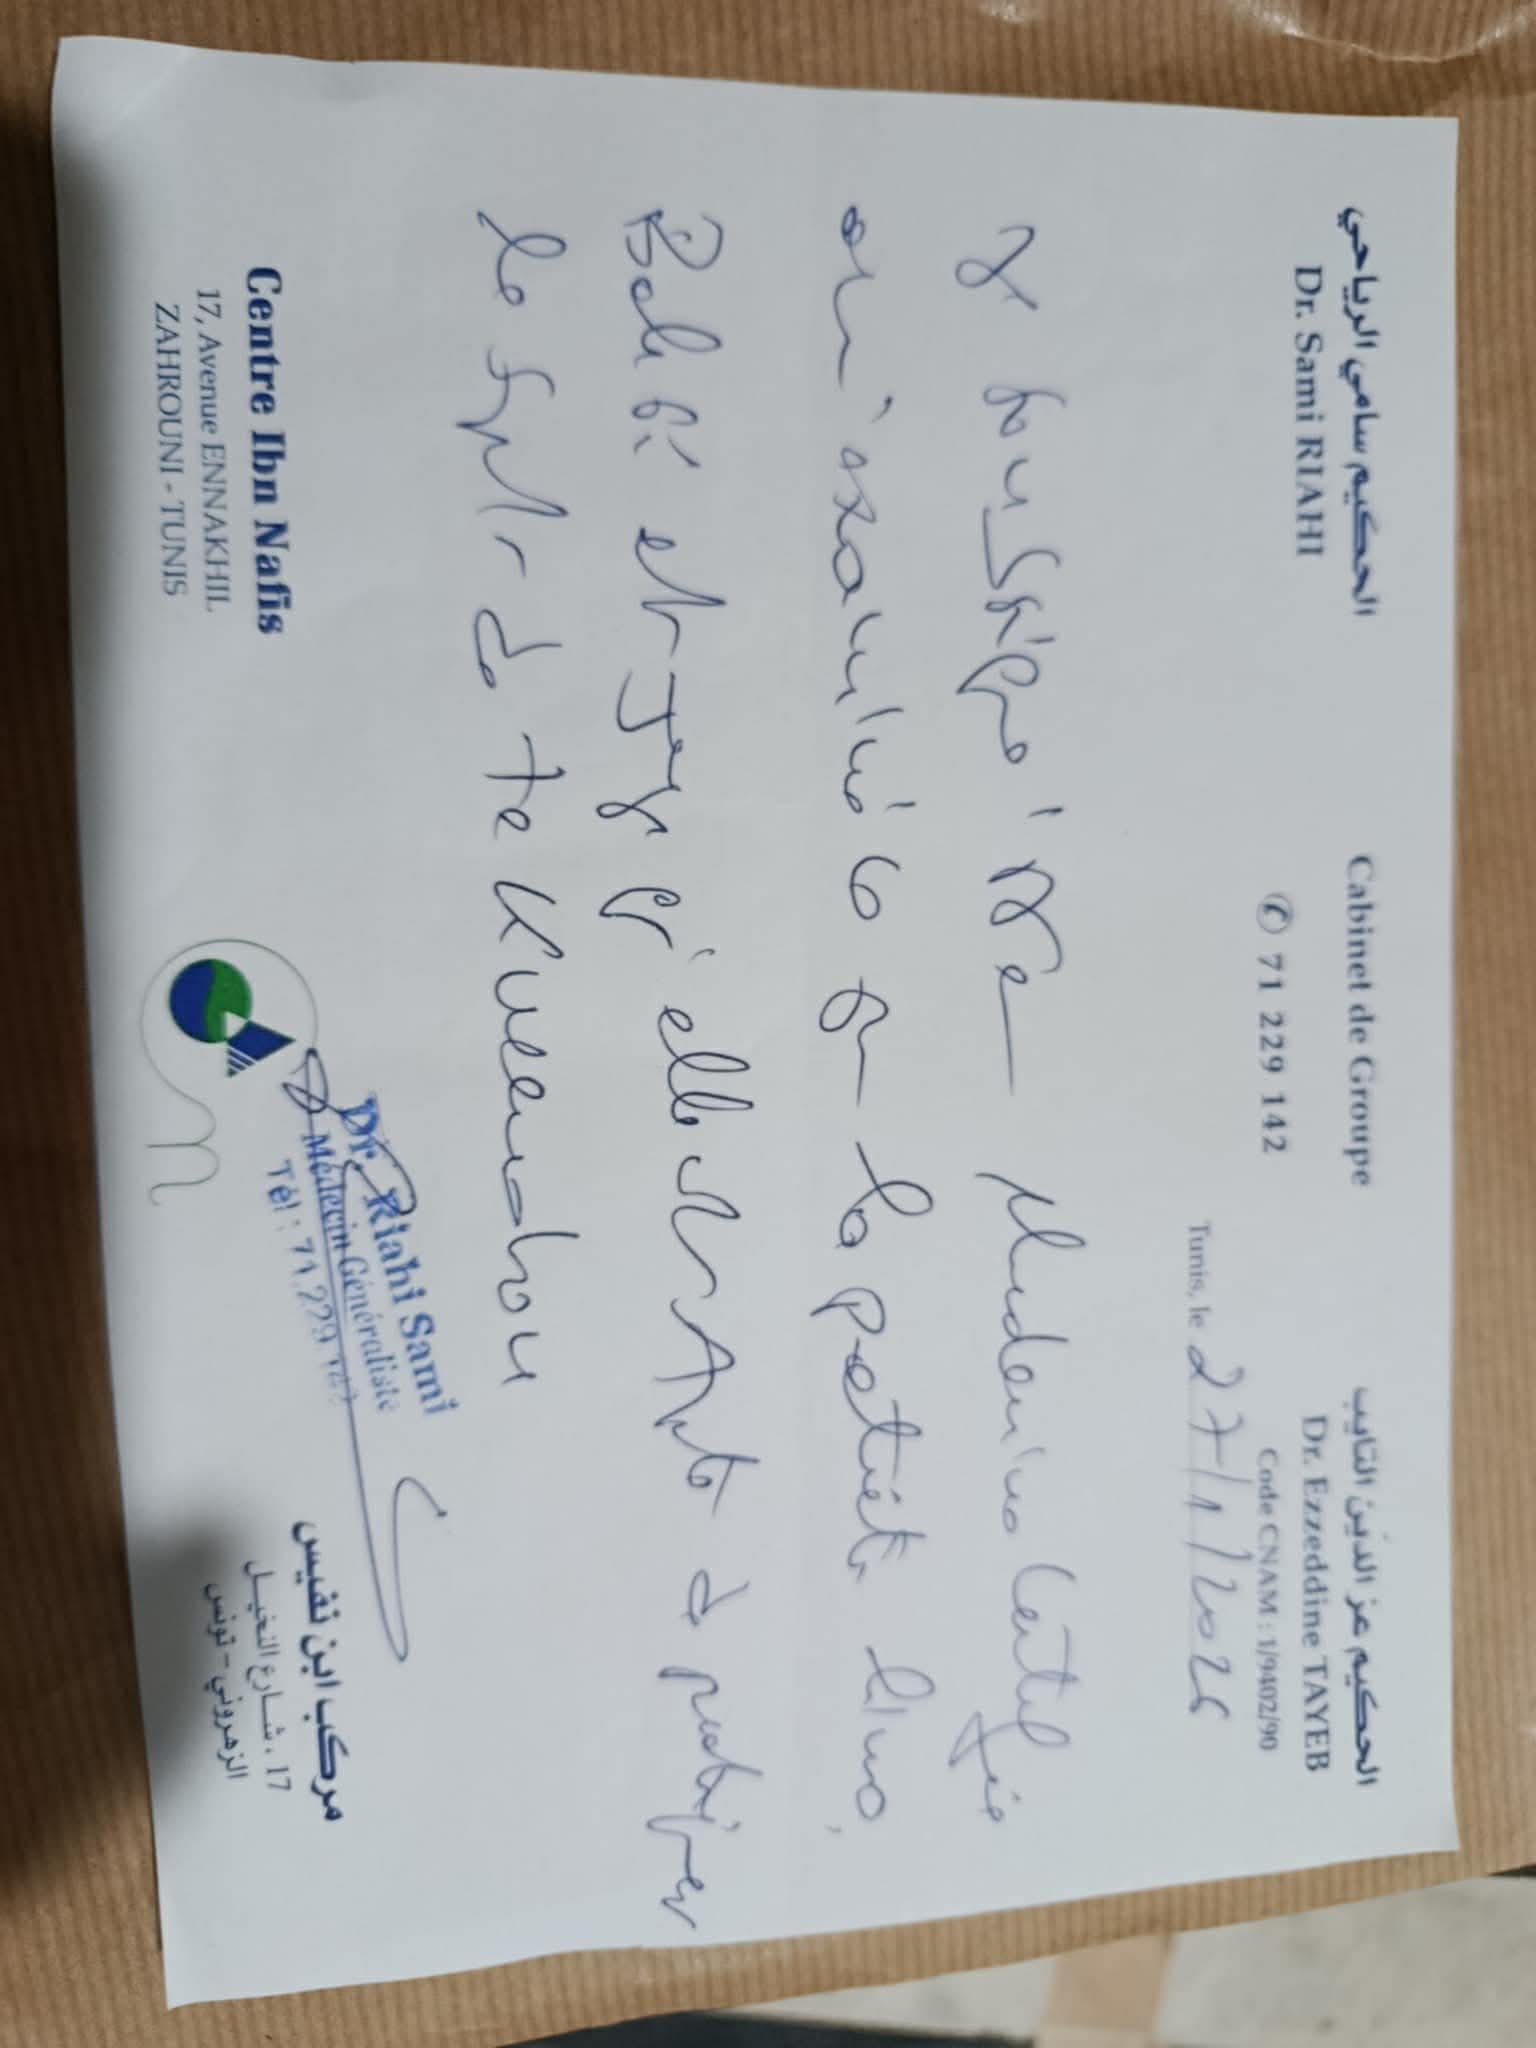 الحكيم سامي الرياحي
Dr. Sami RIAHI
Cabinet de Groupe
✆ 71 229 142
الحكيم عز الدين التايب
Dr. Ezzeddine TAYEB
Code CNAM : 1/9402/90
Tunis, le 27/1/2026
Je soussigné Dr Médecin certifie
avoir examiné ce jour la petite
et jugé qu'elle est Apte à pratiquer
le sport de taekwendou
Centre Ibn Nafis
17, Avenue ENNAKHIL
ZAHROUNI - TUNIS
Dr. Riahi Sami
Médecin Généraliste
Tél : 71.229.142
مركب ابن نفيس
17، شارع النخيل
الزهروني - تونس